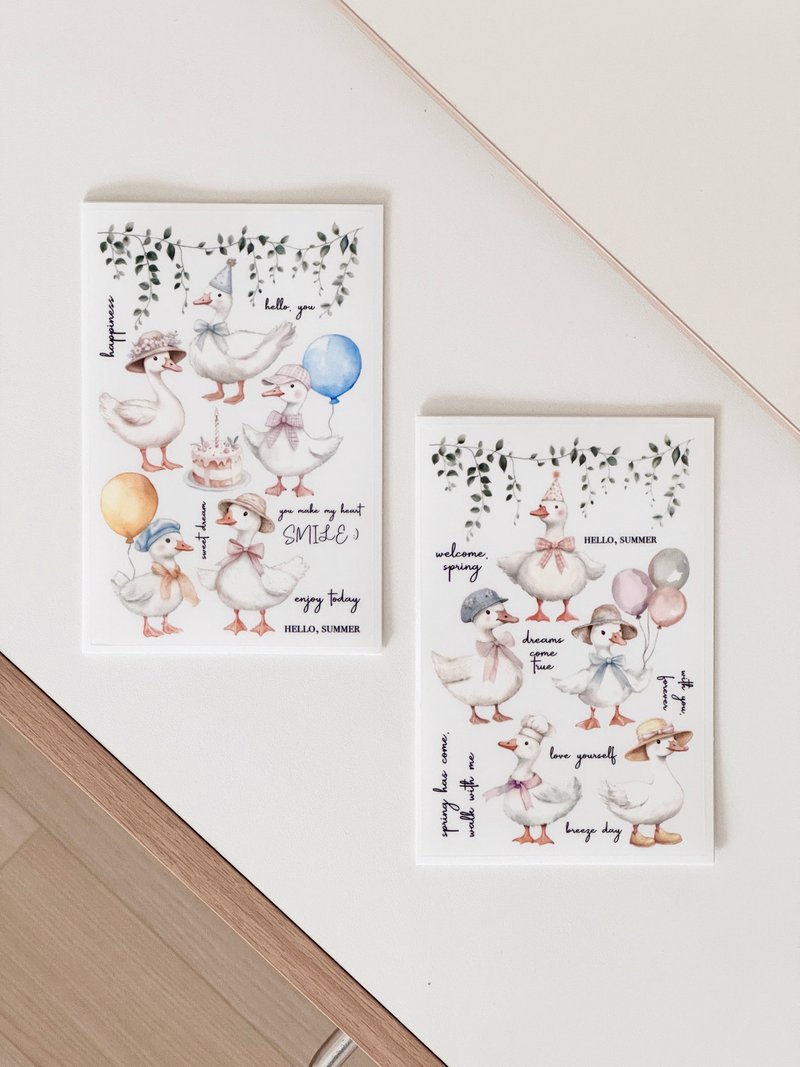 happiness
hello, you
sweet dream
you make my heart
SMILE :)
enjoy today
HELLO, SUMMER
HELLO, SUMMER
welcome,
spring
dreams
come
true
with you,
forever
spring has come,
walk with me
love yourself
breeze day